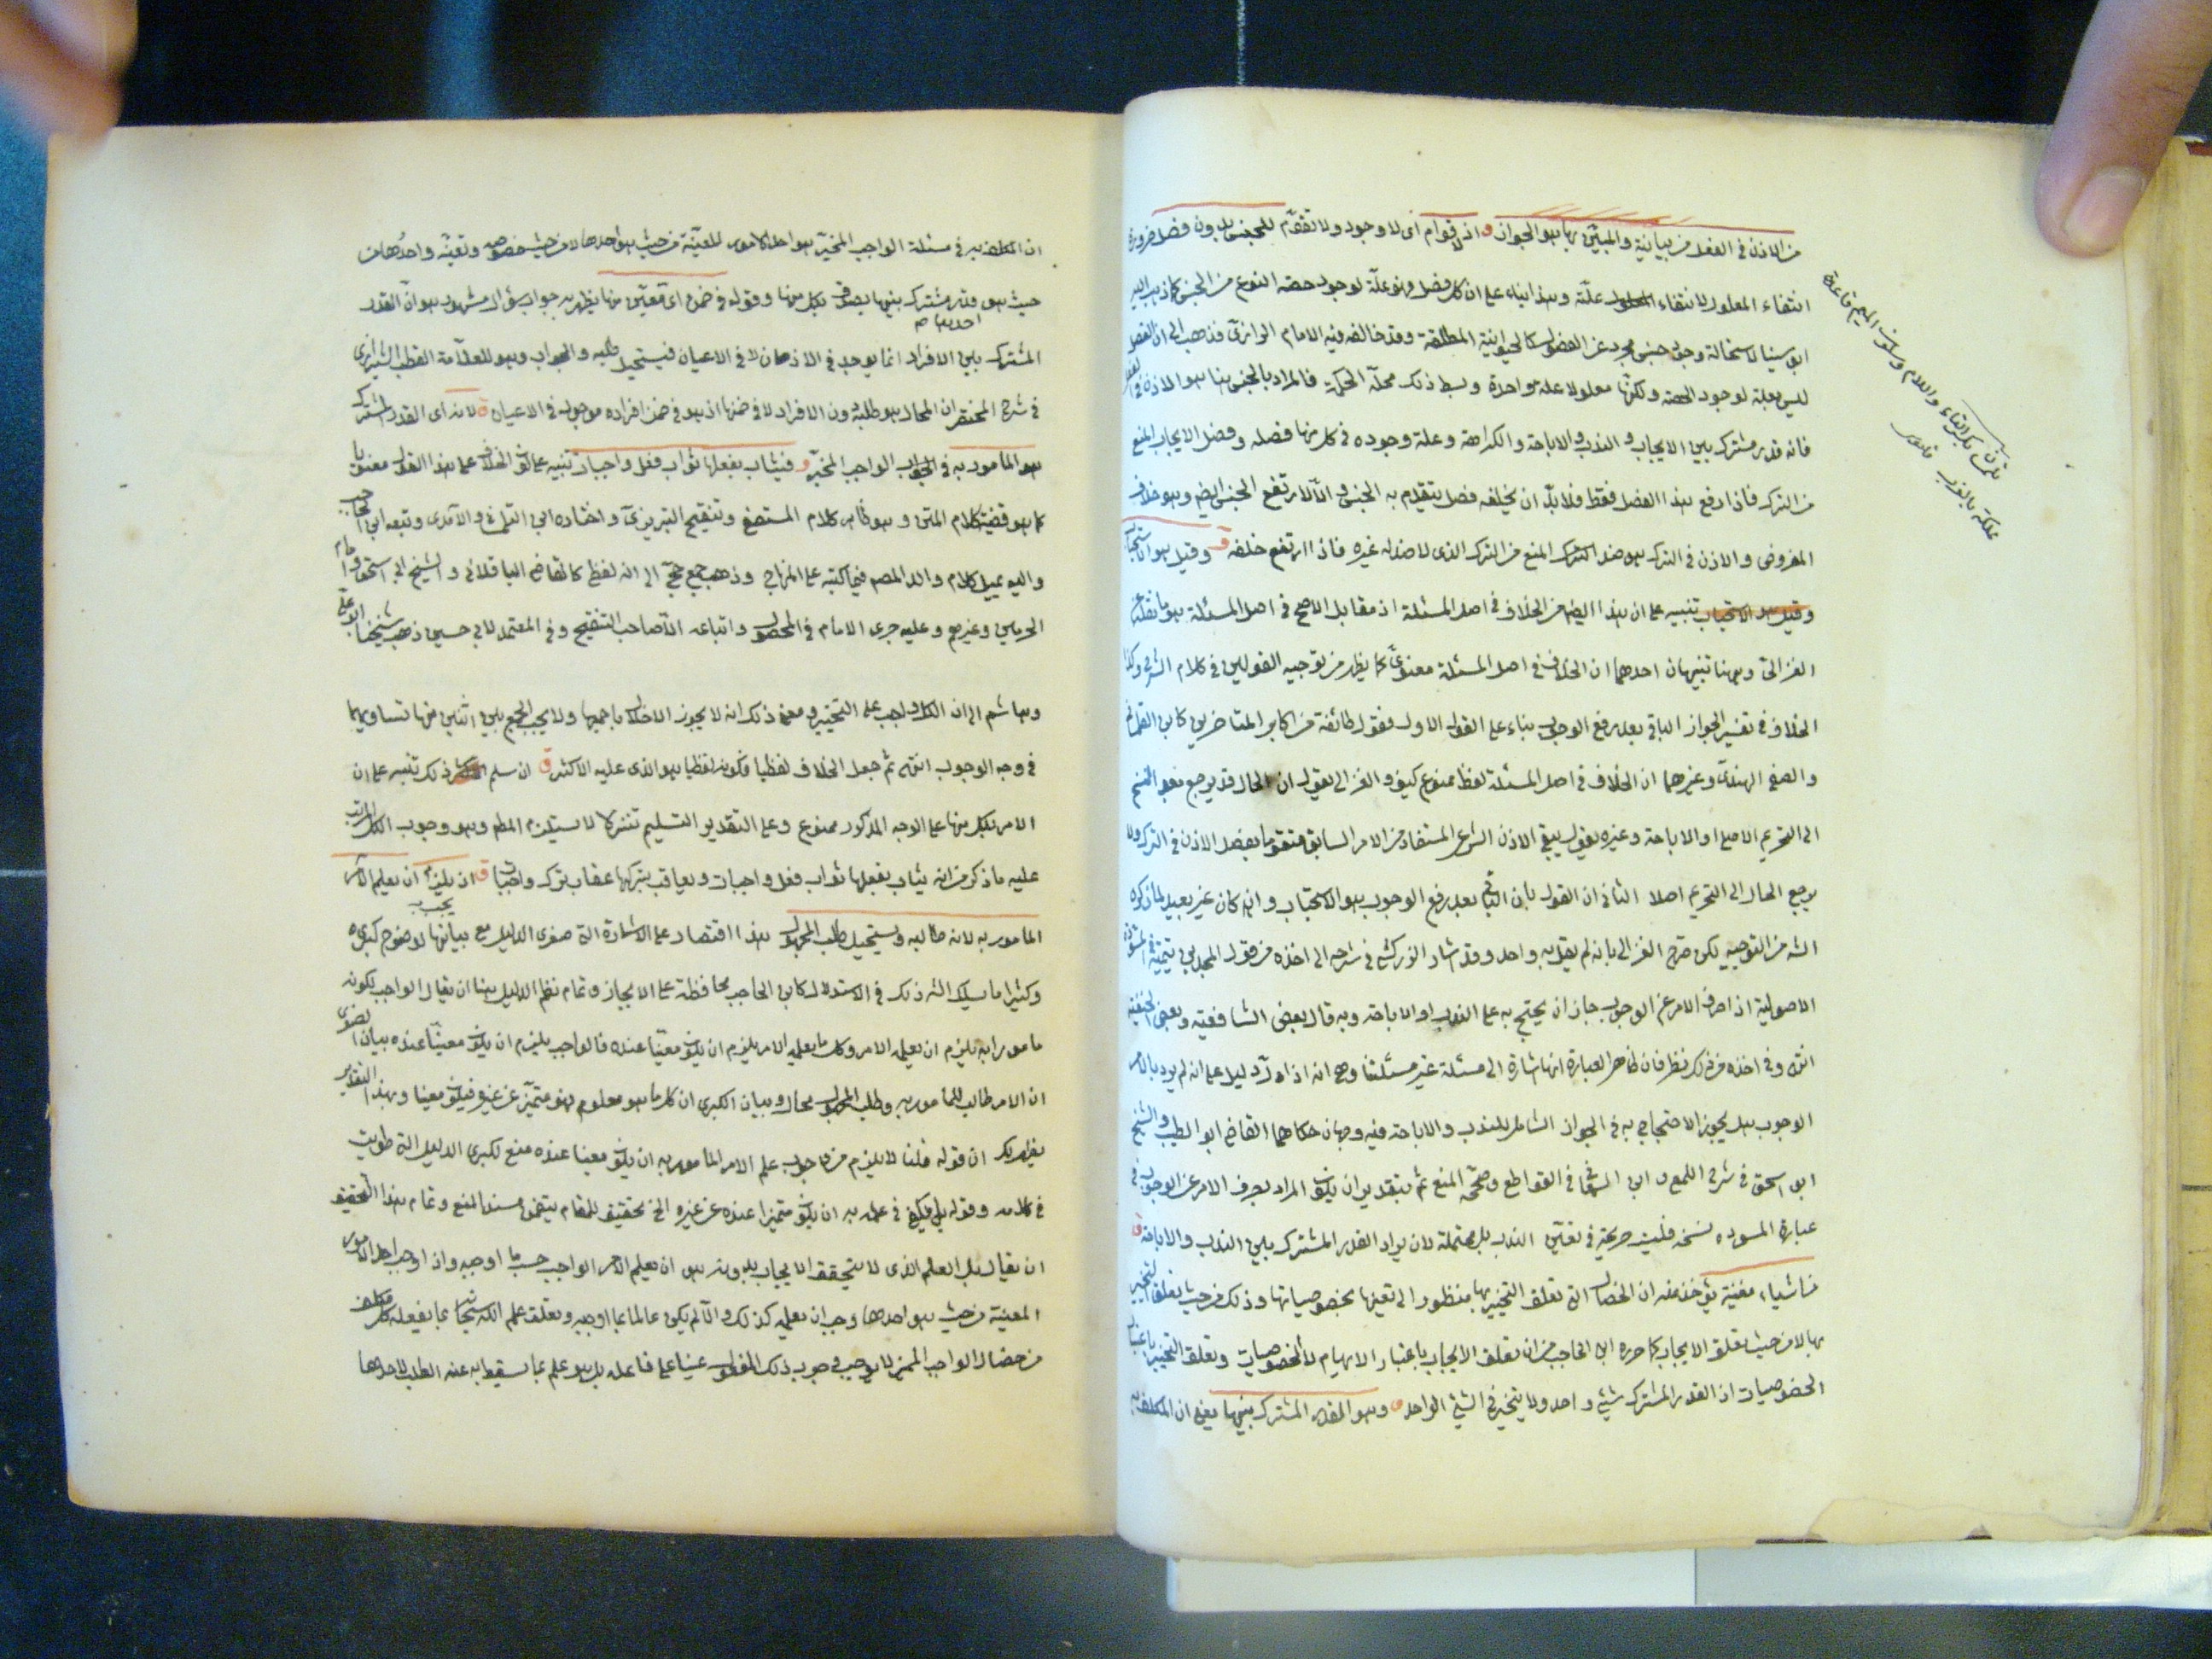 من الاذن في الفعل من بيانية والمبيّن بها هو الجواز اذ لا قوام اى لا وجود ولا تقوّم للجنس بدون فصل ضرورة
انتفاء المعلول لانتفاء علته وهذا بناء على ان كل فصل فهو علة لوجود حصة النوع من الجنس كما ذهب اليه
ابو سينا لاستحالة وجود جنس مجرد عن الفصول كالحيوانية المطلقة وقد خالفه فيه الامام الرازى فذهب الى ان الفصل
ليس بعلة لوجود الحصة ولكنها معلولا علة واحدة وبسط ذلك محله الحكمة فالمراد بالجنس هنا هو الاذن في الفعل
فانه قدر مشترك بين الايجاب و الندب والاباحة والكراهة وعلة وجوده في كل منها فصله وفصل الايجاب المنع
من الترك فاذا ارفع هذا الفصل فقط فلا بد ان يخلفه فصل يتقوم به الجنس والا لارتفع الجنس ايضا وهو خلاف
المفروض والاذن في الترك هو ضد المنع من الترك الذى لا ضد له غيره فاذا ارتفع خلفه ق وقيل هو الاستحباب
وقيل هو الاستحباب تنبيه على ان هذا ايضا من الخلاف في اصل المسئلة اذ مقابل الاصح في اصل المسئلة هو ما نقله عن
الغزالى وههنا تنبيهان احدهما ان الخلاف في اصل المسئلة معنوى كما يظهر من توجيه القولين في كلام الشرح وكذا
الخلاف في تفسير الجواز الباقي بعد رفع الوجوب بناء على القول الاول فقول طائفة من اكابر المتاخرين كابن التلمسانى
والصفى الهندى وغيرهما ان الخلاف في اصل المسئلة لفظى ممنوع كيف والغزالى يقول ان الحال قد يرجع بعد النسخ
الى التحريم الاصلى او الاباحة وغيره يقول يبقى الاذن الشرعى المستفاد من الامر السابق متقوما بفصل الاذن في الترك ولا
يرجع الحال الى التحريم اصلا الثانى ان القول بان الباقى بعد رفع الوجوب هو الاستحباب وان كان غير بعيد لما ذكره
الشه من التوجيه لكن صرح الغزالى بانه لم يقل به واحد وقد اشار الزركشى في شرحه الى اخذه من قول المجد بن تيمية في المسودة
الاصولية اذا صرف الامر عن الوجوب جاز ان يحتج به على الندب او الاباحة وبه قال بعض الشافعية وبعض الحنفية
انتهى وفى اخذه من ذلك نظر فان ظاهر العبارة انها اشارة الى مسئلة غير مسئلتنا وهى انه اذا دل دليل على انه لم يرد بالامر
الوجوب هل يجوز الاحتجاج به في الجواز الشامل للندب والاباحة فيه وجهان حكاهما القاضى ابو الطيب والشيخ
ابو اسحق في شرح اللمع و ابن السمعانى في القواطع وصحح المنع ثم بتقدير ان يكون المراد بصرف الامر عن الوجوب في
عبارة المسوده نسخه فليست صريحة في تعيّن الندب بل محتملة لان يراد القدر المشترك بين الندب والاباحة ق
من اشياء معينة يؤخذ منه ان الخصال التى تعلق التخيير بها منظور الى تعينها بخصوصياتها وذلك من حيث تعلق التخيير
بها لا من حيث تعلق الايجاب كما حرره ابن الحاجب من ان تعلق الايجاب باعتبار الابهام لا الخصوصيات وتعلق التخيير باعتبار
الخصوصيات اذ القدر المشترك شيئ واحد ولا تخيير في الشيئ الواحد ق وهو القدر المشترك بينها يعنى ان المكلف به
تلمسان بكسر التاء واللام وسكون الميم قاعدة
مملكة بالغرب قاموس
ان المكلف به في مسئلة الواجب المخيّر هو احد الامور المعيّنة من حيث هو احدها لا من حيث خصوصه وتعينه واحدُها من
حيث هو قدر مشترك بينها يصدق بكل منها وقوله في ضمن اى معيّن منها يظهر به جواب سؤال مشهور هو ان القدر
المشترك بين الافراد انما يوجد في الاذهان لا في الاعيان فيستحيل طلبه والجواب وهو للعلامة القطب الشيرازى
في شرح المختصر ان المحال هو طلبه دون الافراد لا في ضمنها اذ هو في ضمن افراده موجود في الاعيان ق لانه اى القدر المشترك
هو المامور به في الواجب المخيّر ق فيثاب بفعلها ثواب فعل واجبات تنبيه على ان الخلاف على هذا القول معنوى
كما هو قضية كلام المتن وهو ظاهر كلام المستصفى وتنقيح التبريزى واختاره ابن التلمسانى والآمدى وتبعه ابن الحاجب
واليه يميل كلام والد المصم فيما كتبه على المنهاج وذهب جمع جمّ الى انه لفظى كالقاضى الباقلانى و الشيخ ابى اسحق وامام
الحرمين وغيرهم وعليه جرى الامام في المحصول واتباعه الا صاحب التنقيح وفى المعتمد لابى حسين ذهب شيخنا ابو على
وهاشم الى ان الكل واجب على التخيير ومعنى ذلك انه لا يجوز الاخلال باجمعها ولا يجب الجمع بين اثنين منها لتساويهما
في وجه الوجوب انتهى ثم جعل الخلاف لفظيا فكونه لفظيا هو الذى عليه الاكثر ق ان سلم ذلك تنبيه على ان
الامر بكل منها على الوجه المذكور ممنوع وعلى التقدير التسليم تنزلا لا يستلزم المطم وهو وجوب الكل المرتب
عليه ما ذكر من انه يثاب بفعلها ثواب فعل واجبات ويعاقب بتركها عقاب ترك واجبات ق اذ يجب ان يعلم الامر
المامور به لانه طالبه ويستحيل طلب المجهول هذا اقتصار على الاشارة الى صغرى الدليل مع بيانها لوضوح كبراه
وكثيرا ما يسلك الشه ذلك في الاستدلال كابن الحاجب محافظة على الايجاز وتمام نظم الدليل هنا ان يقال الواجب لكونه
مامورا به يلزم ان يعلمه الامر وكل ما يعلمه الامر يلزم ان يكون معيّنا عنده فالواجب يلزم ان يكون معيّنا عنده بيان الصغرى
ان الامر طالب للمامور به وطلب المجهول محال وبيان الكبرى ان كل ما هو معلوم فهو متميّز عن غيره فيكون معينا وبهذا التقدير
يظهر لك ان قوله قلنا لا يلزم من وجوب علم الامر المامور به ان يكون معينا عنده منع لكبرى الدليل التى طويت
في كلامه وقوله بل يكفى في علمه به ان يكون متميزا عنده عن غيره الخ تحقيق للمقام يتضمن مسند المنع وتمام هذا التحقيق
ان يقال بل العلم الذى لا يتحقق الايجاب بدونه هو ان يعلم الامر الواجب حسب ما اوجبه واذا اوجب احد الامور
المعينة من حيث هو احدها وجب ان يعلمه كذلك والا لم يكن عالما بما اوجبه وتعلق علم الله سبحانه بما يفعله كل مكلف
من خصال الواجب المخير لا يوجب وجوب ذلك المفعول عينا على فاعله بل هو علم بما يسقط به عنه الطلب لاحدها